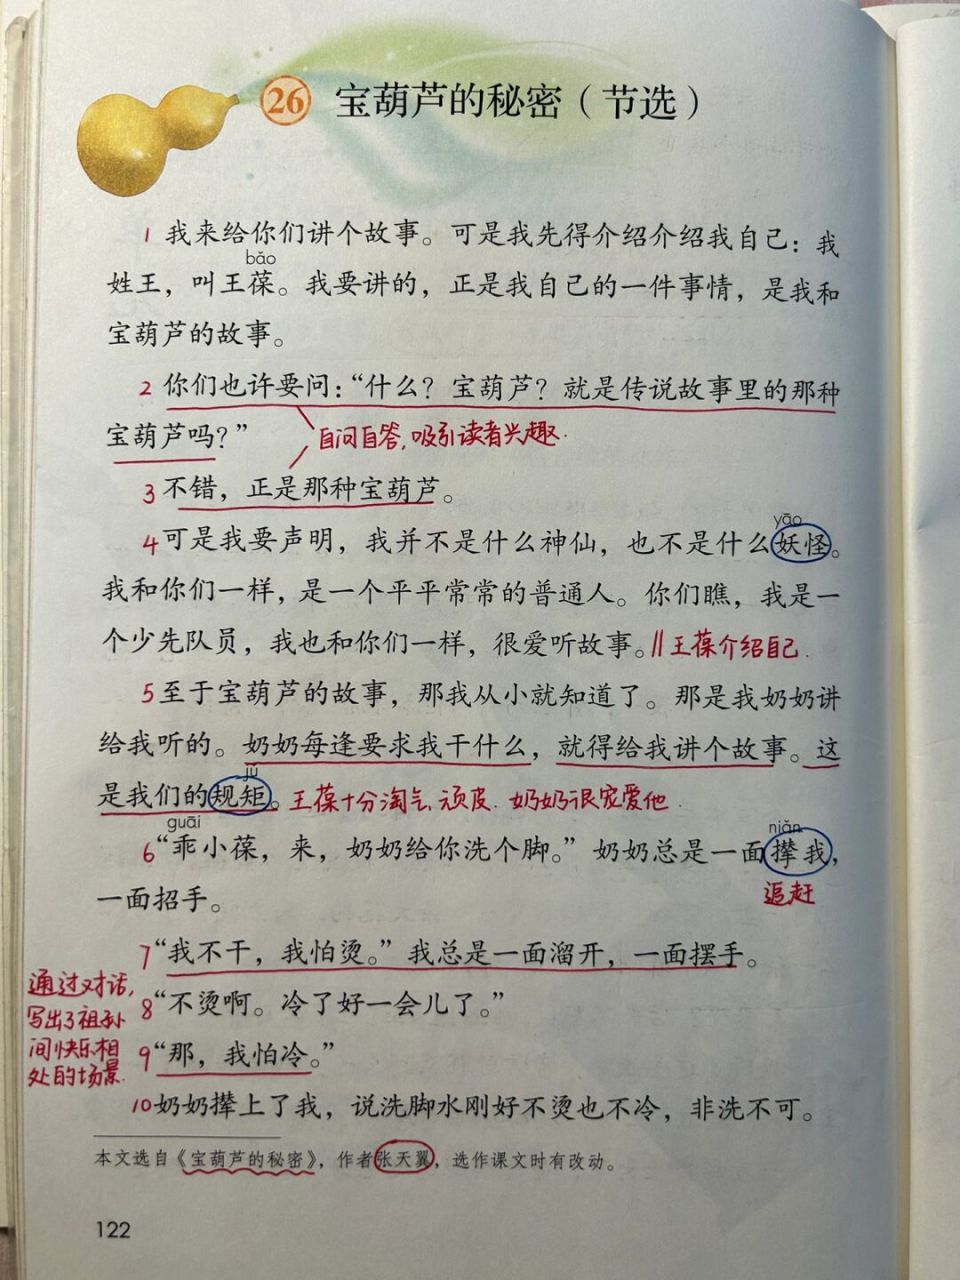 26 宝葫芦的秘密（节选）
1 我来给你们讲个故事。可是我先得介绍介绍我自己：我
bǎo
姓王，叫王葆。我要讲的，正是我自己的一件事情，是我和
宝葫芦的故事。
2 你们也许要问：“什么？宝葫芦？就是传说故事里的那种
宝葫芦吗？” 自问自答，吸引读者兴趣.
3 不错，正是那种宝葫芦。
yāo
4 可是我要声明，我并不是什么神仙，也不是什么妖怪。
我和你们一样，是一个平平常常的普通人。你们瞧，我是一
个少先队员，我也和你们一样，很爱听故事。∥王葆介绍自己.
5 至于宝葫芦的故事，那我从小就知道了。那是我奶奶讲
给我听的。奶奶每逢要求我干什么，就得给我讲个故事。这
jǔ
是我们的规矩。王葆十分淘气、顽皮. 奶奶很宠爱他.
guāi niǎn
6 “乖小葆，来，奶奶给你洗个脚。”奶奶总是一面撵我，
追赶
一面招手。
7 “我不干，我怕烫。”我总是一面溜开，一面摆手。
通过对话，
写出了祖孙
间快乐相
处的场景.
8 “不烫啊。冷了好一会儿了。”
9 “那，我怕冷。”
10 奶奶撵上了我，说洗脚水刚好不烫也不冷，非洗不可。
本文选自《宝葫芦的秘密》，作者张天翼，选作课文时有改动。
122